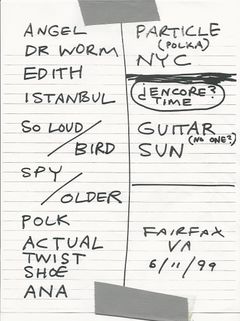 ANGEL
DR WORM
EDITH
ISTANBUL
SO LOUD/
BIRD
SPY
/OLDER
POLK
ACTUAL
TWIST
SHOE
ANA
PARTICLE
(POLKA)
NYC
¿ENCORE?
TIME
GUITAR
(NO ONE?)
SUN
FAIRFAX
VA
6/11/99